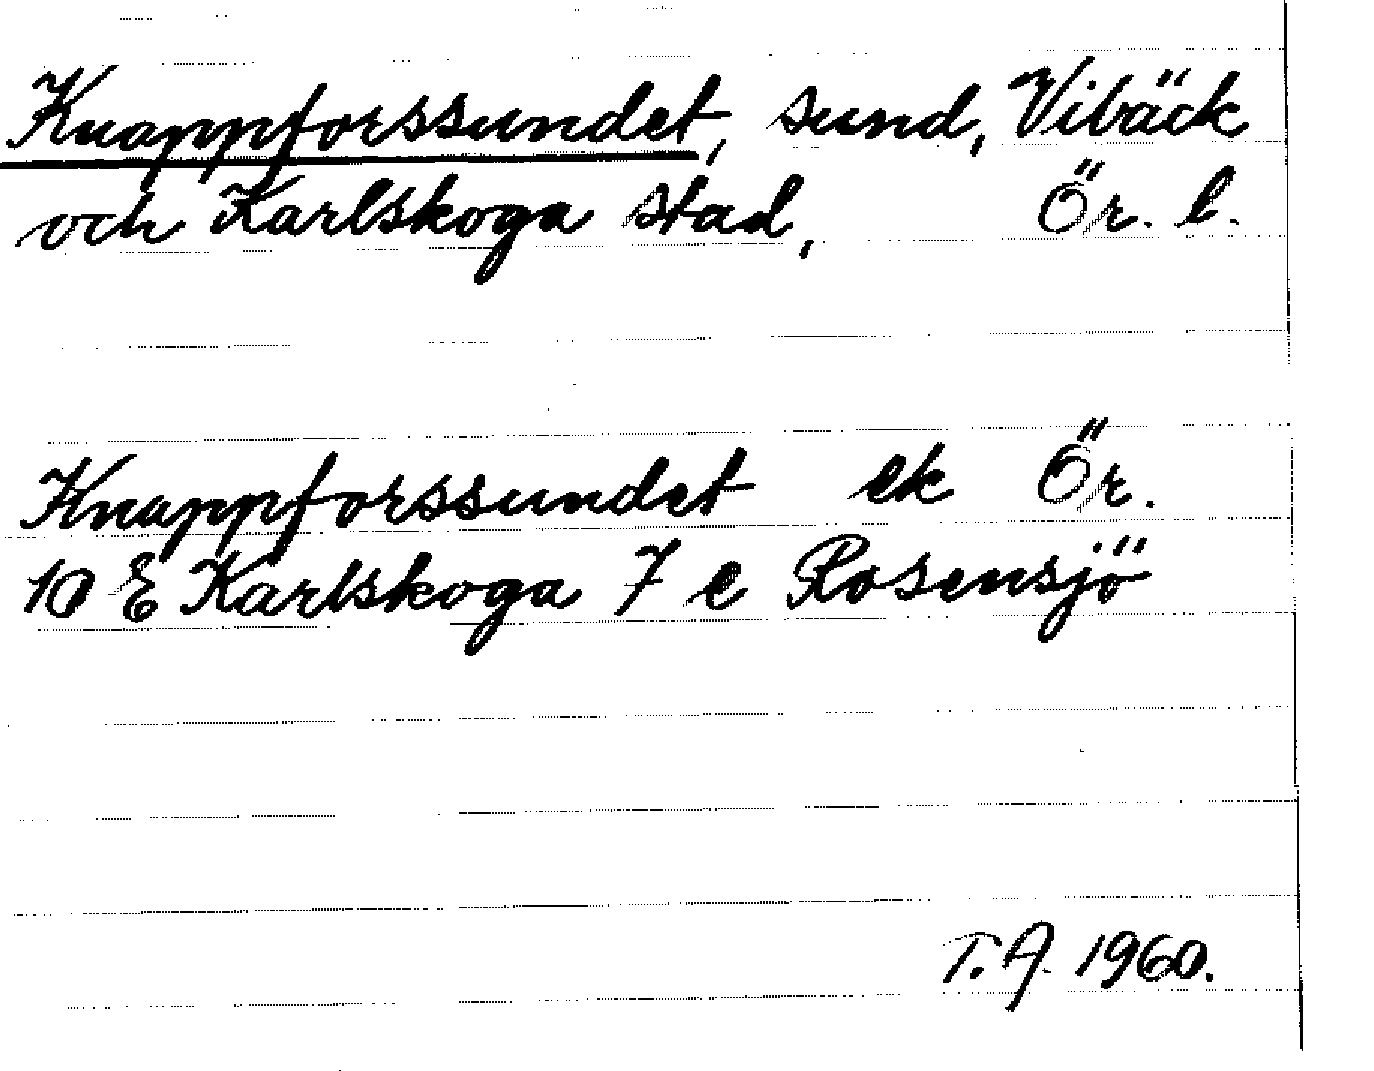 Knappforssundet, sund, Vibäck
och Karlskoga stad, Ör. l.
Knappforssundet ek Ör.
10 E Karlskoga 7 e Rosensjö
T.A 1960.